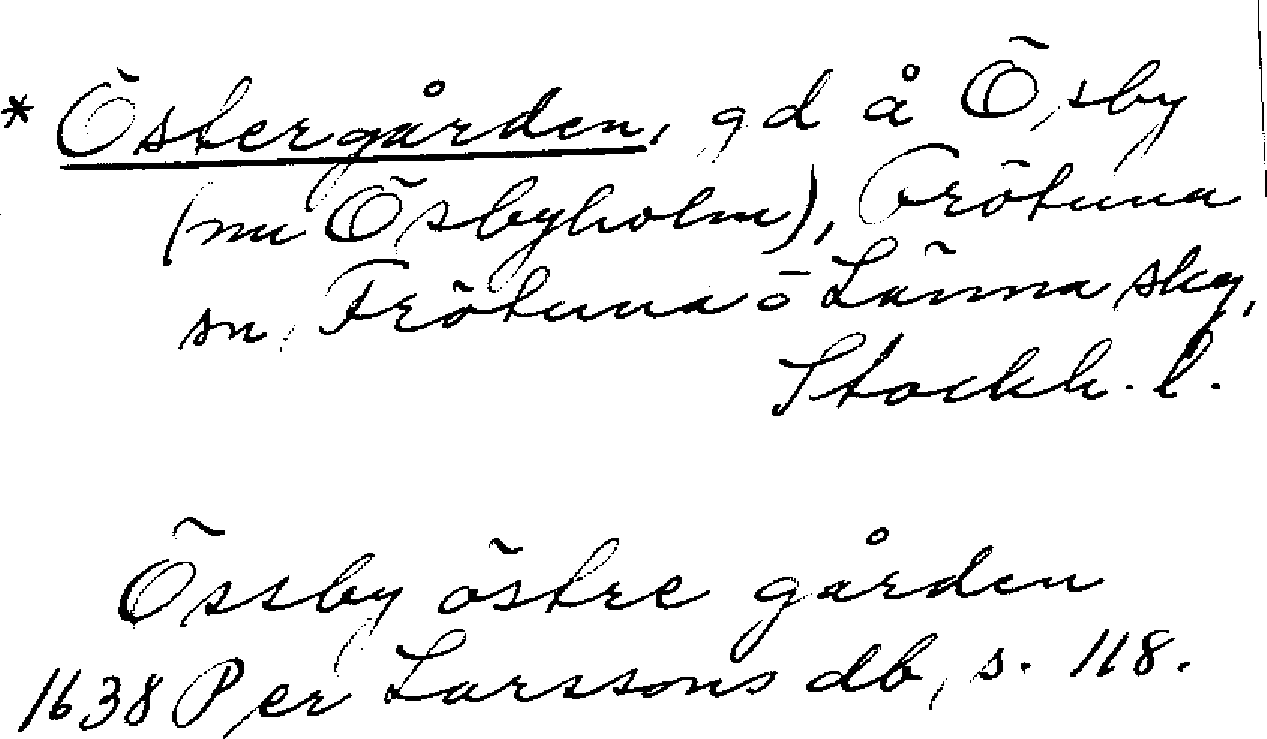 * Östergården, gd å Ösby
(nu Ösbyholm), Frötuna
sn, Frötuna o Länna skg,
Stockh. l.
Össby östre gården
1638 Per Larssons db, s. 118.